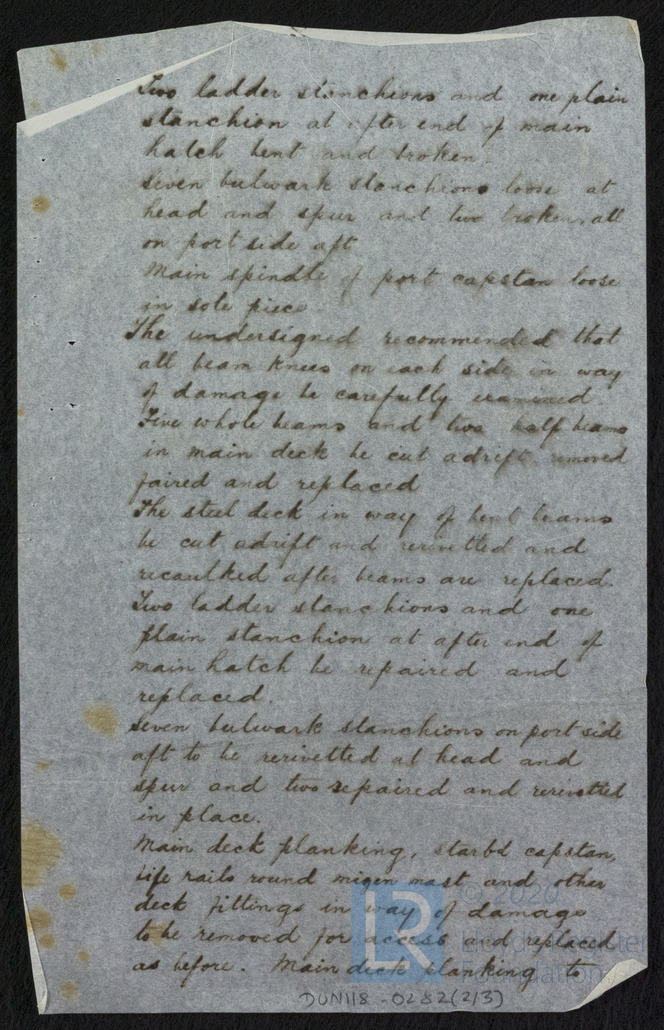 Two ladder stanchions and one plain
stanchion at after end of main
hatch bent and broken.
Seven bulwark stanchions loose at
head and spur and two broken, all
on port side aft
Main spindle of port capstan loose
in sole piece
The undersigned recommended that
all beam knees on each side in way
of damage be carefully examined
Five whole beams and two half beams
in main deck be cut adrift removed
faired and replaced
The steel deck in way of bent beams
be cut adrift and rerivetted and
recaulked after beams are replaced.
Two ladder stanchions and one
plain stanchion at after end of
main hatch be repaired and
replaced.
Seven bulwark stanchions on port side
aft to be rerivetted at head and
spur and two repaired and rerivetted
in place.
Main deck planking, starbd capstan,
fife rails round mizen mast and other
deck fittings in way of damage
to be removed for access and replaced
as before. Main deck planking to
DUN118-0282(2/3)
LR
© 2020
Lloyd's Register
Foundation